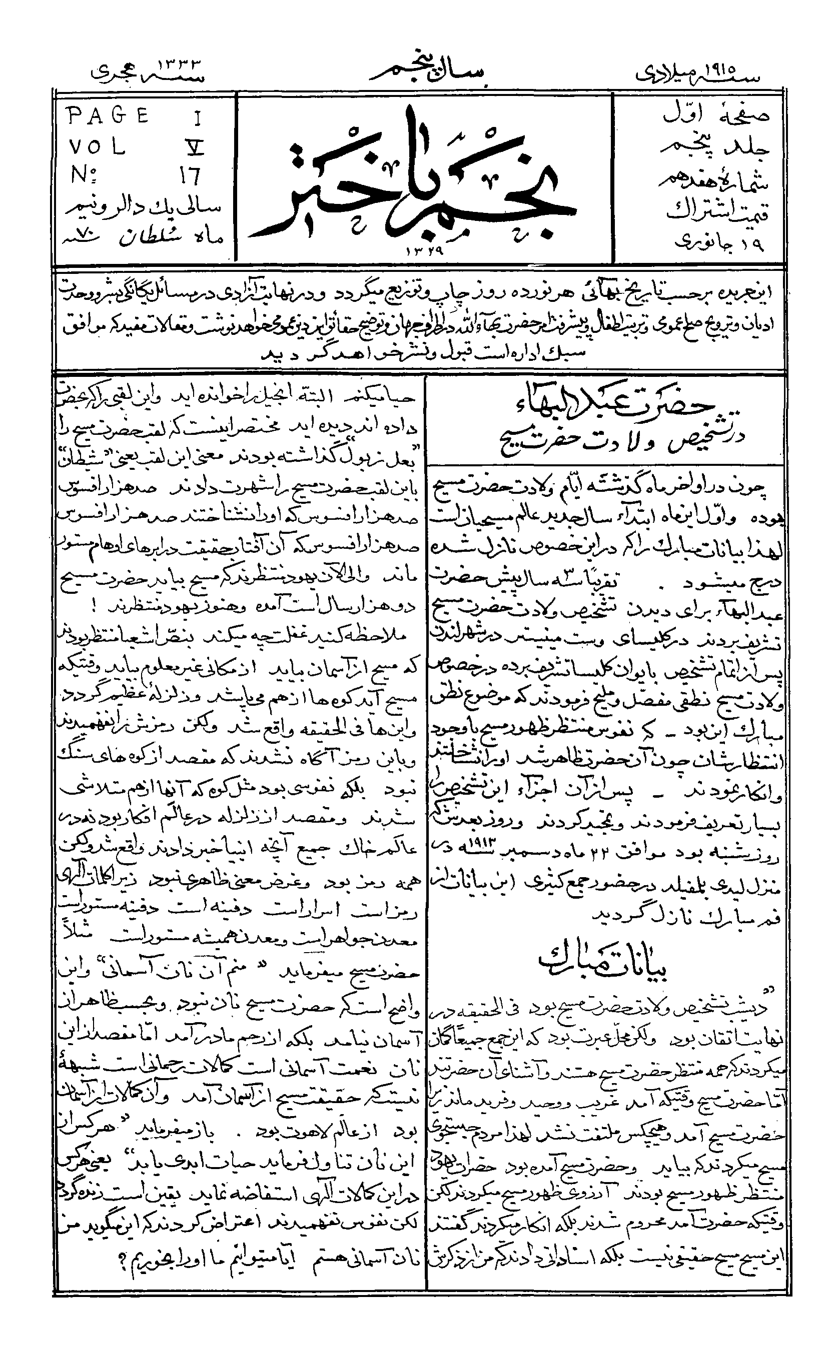 سنه ۱۹۱۵ میلادی
سال پنجم
سنه ۱۳۳۳ هجری
صفحهٔ اوّل
جلد پنجم
شمارهٔ هفدهم
قیمت اشتراك
۱۹ جانوری
نجم باختر
۱۳۲۹
PAGE I
VOL V
Nº 17
سالی یك دالر و نیم
ماه سُلطان سنه ۷۰
این جریده برحسب تاریخ بهائی هر نوزده روز چاپ و توزیع میگردد و در نهایت آزادی در مسائل یگانگی بشر و وحدت
ادیان و ترویج صلح عمومی و تربیت اطفال و پیشرفت امر حضرت بهآءالله در اطراف جهان و توضیح حقائق این دین عمومی خواهد نوشت و مقالات مفیده که موافق
سبك اداره است قبول و نشر خواهد گردید
حضرت عبدالبهآء
در تشخیص ولادت حضرت مسیح
چون در اواخر ماه گذشته ایّام ولادت حضرت مسیح
بوده و اوّل این ماه ابتدآء سال جدید عالم مسیحیان است
لهذا بیانات مبارك را که در این خصوص نازل شده
درج میشود . تقریباً سه سال پیش حضرت
عبدالبهآء برای دیدن تشخیص ولادت حضرت مسیح
تشریف بردند در کلیسای وست مینیستر در شهر لندن
پس از اتمام تشخیص بایوان کلیسا تشریف برده در خصوص
ولادت مسیح نطقی مفصّل و ملیح فرمودند که موضوع نطق
مبارك این بود ـ که نفوس منتظر ظهور مسیح با وجود
انتظارشان چون آن حضرت ظاهر شد او را نشناختند
و انکار نمودند ـ پس از آن اجزاء این تشخیص را
بسیار تعریف فرمودند و تمجید کردند و روز بعدش که
روز شنبه بود موافق ۲۲ ماه دسمبر سنه ۱۹۱۳ در
منزل لیدی بلمفیلد در حضور جمع کثیری (این بیانات از
فم مبارك نازل گردید
بیانات مبارك
"دیشب تشخیص ولادت حضرت مسیح بود فی الحقیقه در
نهایت اتقان بود ولکن محلّ عبرت بود که این جمع جمیعاً گمان
میکردند که همه منتظر حضرت مسیح هستند و آشنای آن حضرتند
امّا حضرت مسیح وقتیکه آمد غریب و وحید و فرید ماند زیرا
حضرت مسیح آمد و هیچکس ملتفت نشد لهذا مردم جستجوی
مسیح میکردند که بیاید و حضرت مسیح آمده بود حضرات یهود
منتظر ظهور مسیح بودند آرزوی ظهور مسیح میکردند لکن
وقتیکه حضرت آمد محروم شدند بلکه انکار میکردند گفتند
این مسیح مسیح حقیقی نیست بلکه اسناداتی دادند که من از ذکرش
حیا میکنم البته انجیل را خوانده اید و این لقبی را که بحضرت
داده اند دیده اید مختصر اینست که لقب حضرت مسیح را
"بعل زبول" گذاشته بودند معنی این لقب یعنی "شیطان"
باین لقب حضرت مسیح را شهرت دادند صد هزار افسوس
صد هزار افسوس که او را نشناختند صد هزار افسوس
صد هزار افسوس که آن آفتاب حقیقت در ابرهای اوهام مستور
ماند و الی الآن یهود منتظرند که مسیح بیاید حضرت مسیح
دو هزار سال است آمده و هنوز یهود منتظرند !
ملاحظه کنید غفلت چه میکند بنصّ اشعیا منتظر بودند
که مسیح از آسمان بیاید از مکانی غیر معلوم بیاید وقتیکه
مسیح آید کوه ها از هم می پاشد و زلزلهٔ عظیم گردد
و اینها فی الحقیقه واقع شد ولکن رمزش را نفهمیدند
و باین رمز آگاه نشدند که مقصد از کوه های سنگ
نبود بلکه نفوسی بود مثل کوه که آنها از هم متلاشی
شدند و مقصد از زلزله در عالم افکار بود نه در
عالم خاك جمیع آنچه انبیا خبر دادند واقع شد ولکن
همه رمز بود و غرض معنی ظاهری نبود زیرا کلمات الهی
رمز است اسرار است دفینه است دفینه مستور است
معدن جواهر است و معدن همیشه مستور است مثلاً
حضرت مسیح میفرماید "منم آن نان آسمانی" و این
واضح است که حضرت مسیح نان نبود و بحسب ظاهر از
آسمان نیامد بلکه از رحم مادر آمد امّا مقصد از این
نان نعمت آسمانی است کمالات رحمانی است شبههٔ
نیست که حقیقت مسیح از آسمان آمد و آن کمالات از آسمان
بود از عالم لاهوت بود . باز میفرماید "هر کس از
این نان تناول فرماید حیات ابدی یابد" یعنی هر کس
در این کمالات الهی استفاضه نماید یقین است زنده گردد
لکن نفوس نفهمیدند اعتراض کردند که این میگوید من
نان آسمانی هستم آیا میتوانیم ما او را بخوریم ؟